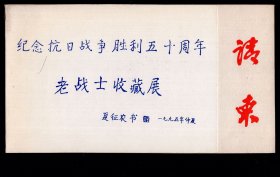 纪念抗日战争胜利五十周年
老战士收藏展
夏征农书 一九九五年仲夏
请柬